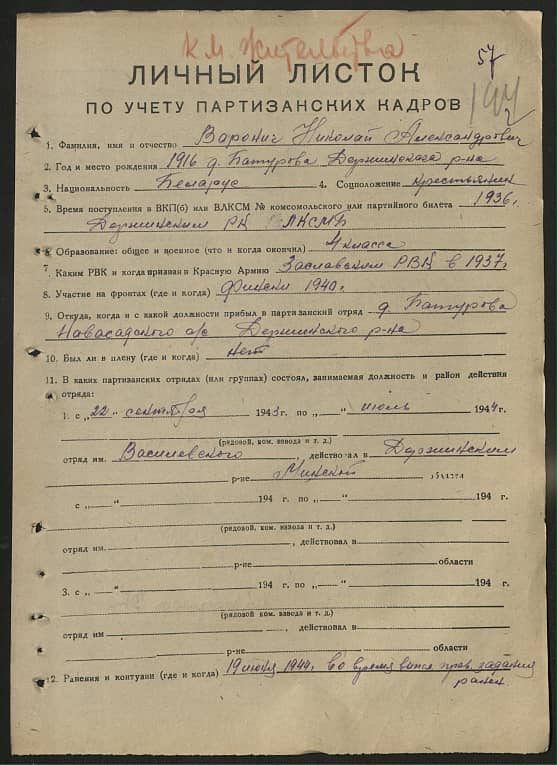 к м. жительства
57
ЛИЧНЫЙ ЛИСТОК
197
ПО УЧЕТУ ПАРТИЗАНСКИХ КАДРОВ
1. Фамилия, имя и отчество Варонич Николай Александрович
2. Год и место рождения 1916 д. Батурова Дзержинскага р-на
3. Национальность Беларус 4. Соцположение крестьянин
5. Время поступления в ВКП(б) или ВЛКСМ № комсомольского или партийного билета 1936г.
Дзержинским РК ВЛКСМБ
6. Образование: общее и военное (что и когда окончил) 4 класса
7. Каким РВК и когда призван в Красную Армию Заславским РВК в 1937г
8. Участие на фронтах (где и когда) Фински 1940г
9. Откуда, когда и с какой должности прибыл в партизанский отряд д. Батурова
Новасадского с/с Дзержинского р-на
10. Был ли в плену (где и когда) нет
11. В каких партизанских отрядах (или группах) состоял, занимаемая должность и район действия
отряда:
1. с „22" сентября 1943г. по „ " июль 1944г.
(рядовой, ком. взвода и т. д.)
отряд им. Василевского, действовал в Дзержинским
р-не Минской области
с „ " 194 г. по „ " 194 г.
(рядовой, ком. взвода и т. д.)
отряд им. , действовал в
р-не области
3. с „ " 194 г. по „ " 194 г.
(рядовой, ком. взвода и т. д.)
отряд им. , действовал в
р-не области
12. Ранения и контузии (где и когда) 19 июня 1944г. Во время задания
ранен